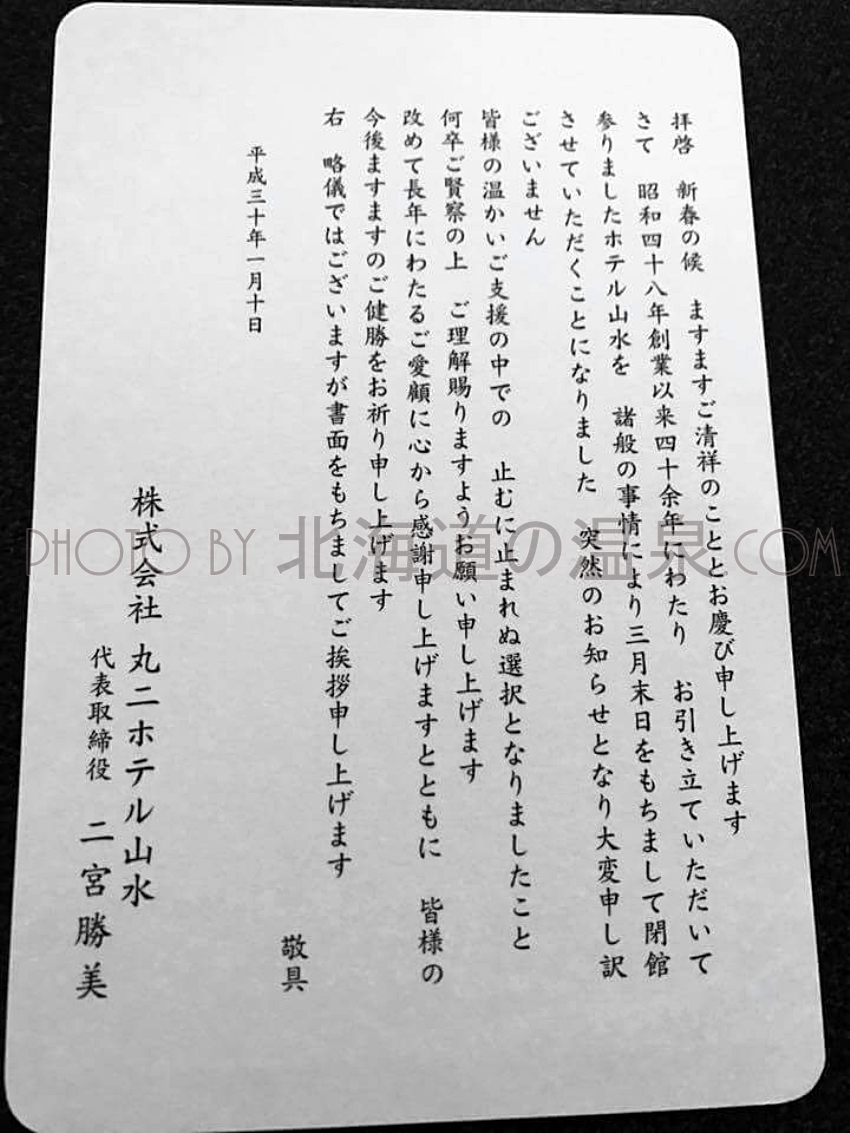 拝啓　新春の候　ますますご清祥のこととお慶び申し上げます
さて　昭和四十八年創業以来四十余年にわたり　お引き立ていただいて
参りましたホテル山水を　諸般の事情により三月末日をもちまして閉館
させていただくことになりました　突然のお知らせとなり大変申し訳
ございません
皆様の温かいご支援の中での　止むに止まれぬ選択となりましたこと
何卒ご賢察の上　ご理解賜りますようお願い申し上げます
改めて長年にわたるご愛顧に心から感謝申し上げますとともに　皆様の
今後ますますのご健勝をお祈り申し上げます
右　略儀ではございますが書面をもちましてご挨拶申し上げます
敬具
平成三十年一月十日
株式会社 丸二ホテル山水
代表取締役　二宮勝美
PHOTO BY 北海道の温泉.COM